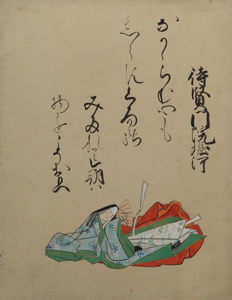 待賢門院堀河
なかからむ心も
しらすくろ髪の
みたれて今朝は
物をこそおもへ